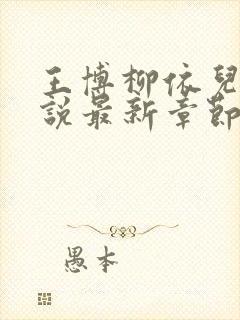 王博柳依兒
說最新章節
愚本